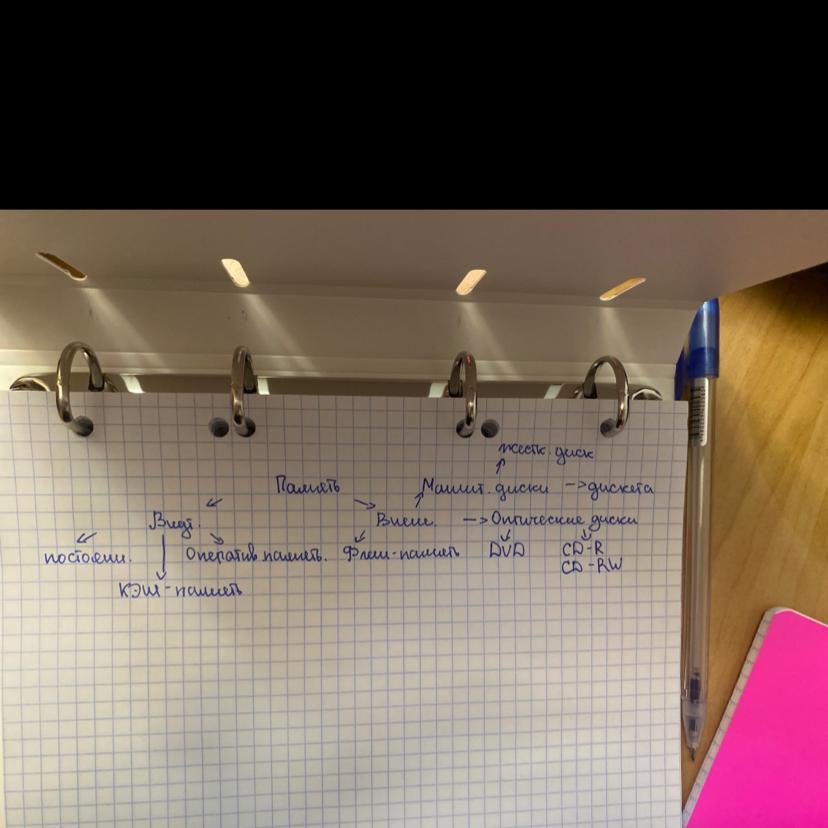 жестк. диск
Память Магнит. диски -> дискета
Внут. Внеш. -> Оптические диски
постоянн. Оператив память. Флеш-память DVD CD-R
CD-RW
КЭШ-память